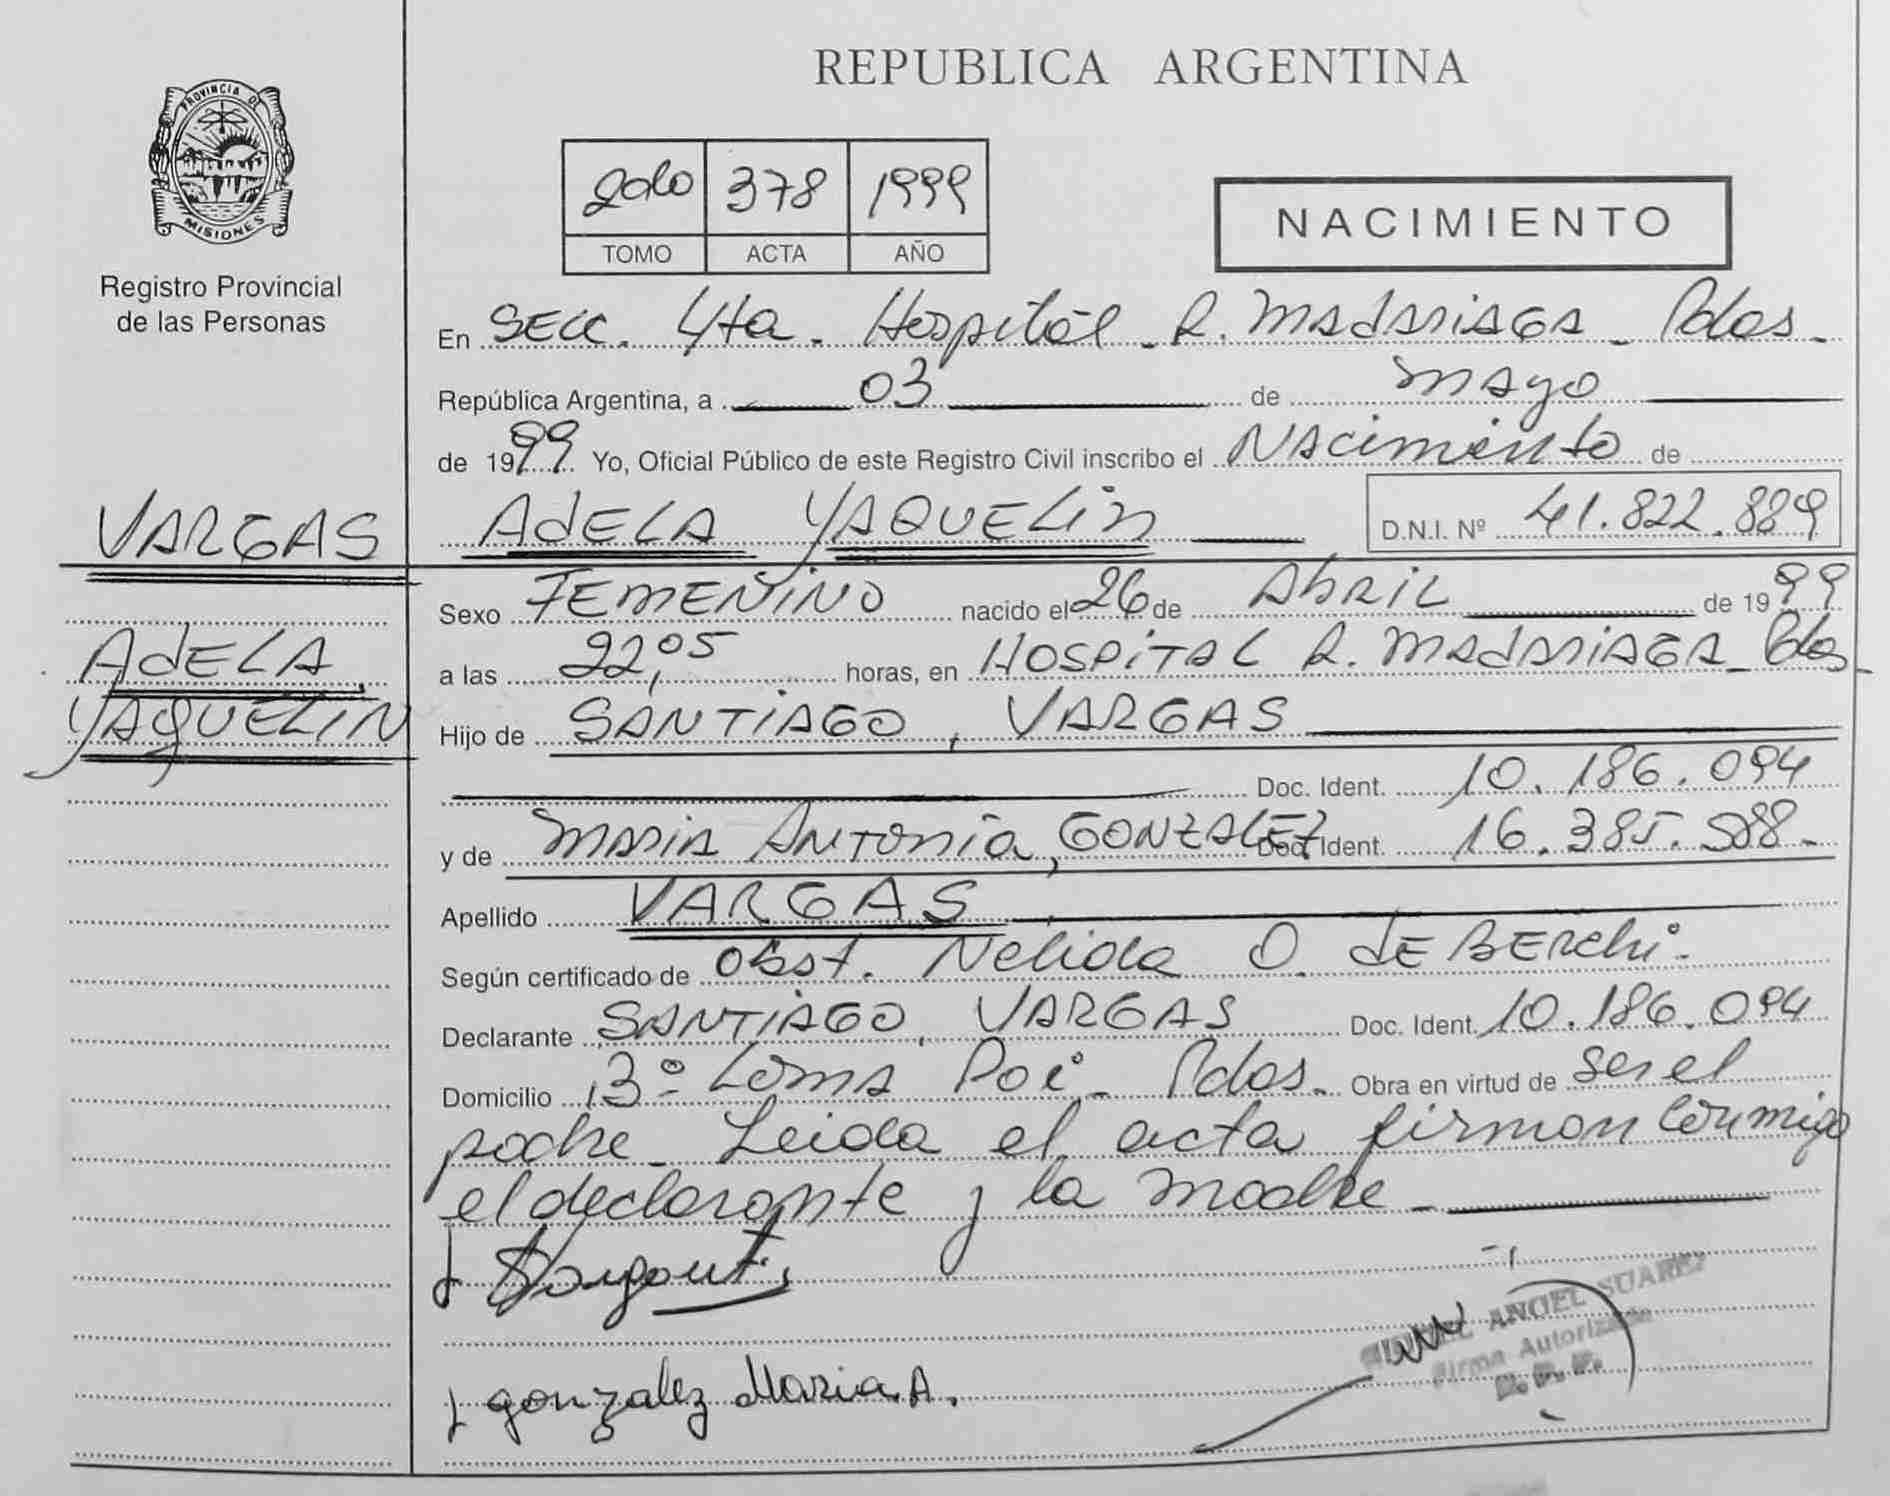 REPUBLICA ARGENTINA
PROVINCIA DE
MISIONES
Registro Provincial
de las Personas
378 1999
TOMO ACTA AÑO
NACIMIENTO
En SECC. 4ta. Hospital R. MADARIAGA Pdas.
República Argentina, a 03 de mayo
de 1999 Yo, Oficial Público de este Registro Civil inscribo el NACimiento de
VARGAS
ADELA YAQUELIN D.N.I. Nº 41.822.889
ADELA
YAQUELIN
Sexo FEMENINO nacido el 26 de Abril de 1999
a las 22,05 horas, en HOSPITAL R. MADARIAGA Pdas.
Hijo de SANTIAGO, VARGAS
Doc. Ident. 10.186.094
y de MARIA ANTONIA, GONZALEZ Doc. Ident. 16.385.988.
Apellido VARGAS
Según certificado de obst. Nelida O. de BERchi.
Declarante SANTIAGO, VARGAS Doc. Ident. 10.186.094
Domicilio 3º Loma Poi Pdas. Obra en virtud de ser el
padre. Leida el acta firman conmigo
el declarante y la madre
gonzalez Maria A.
ANGEL SUAREZ
Firma Autorizada